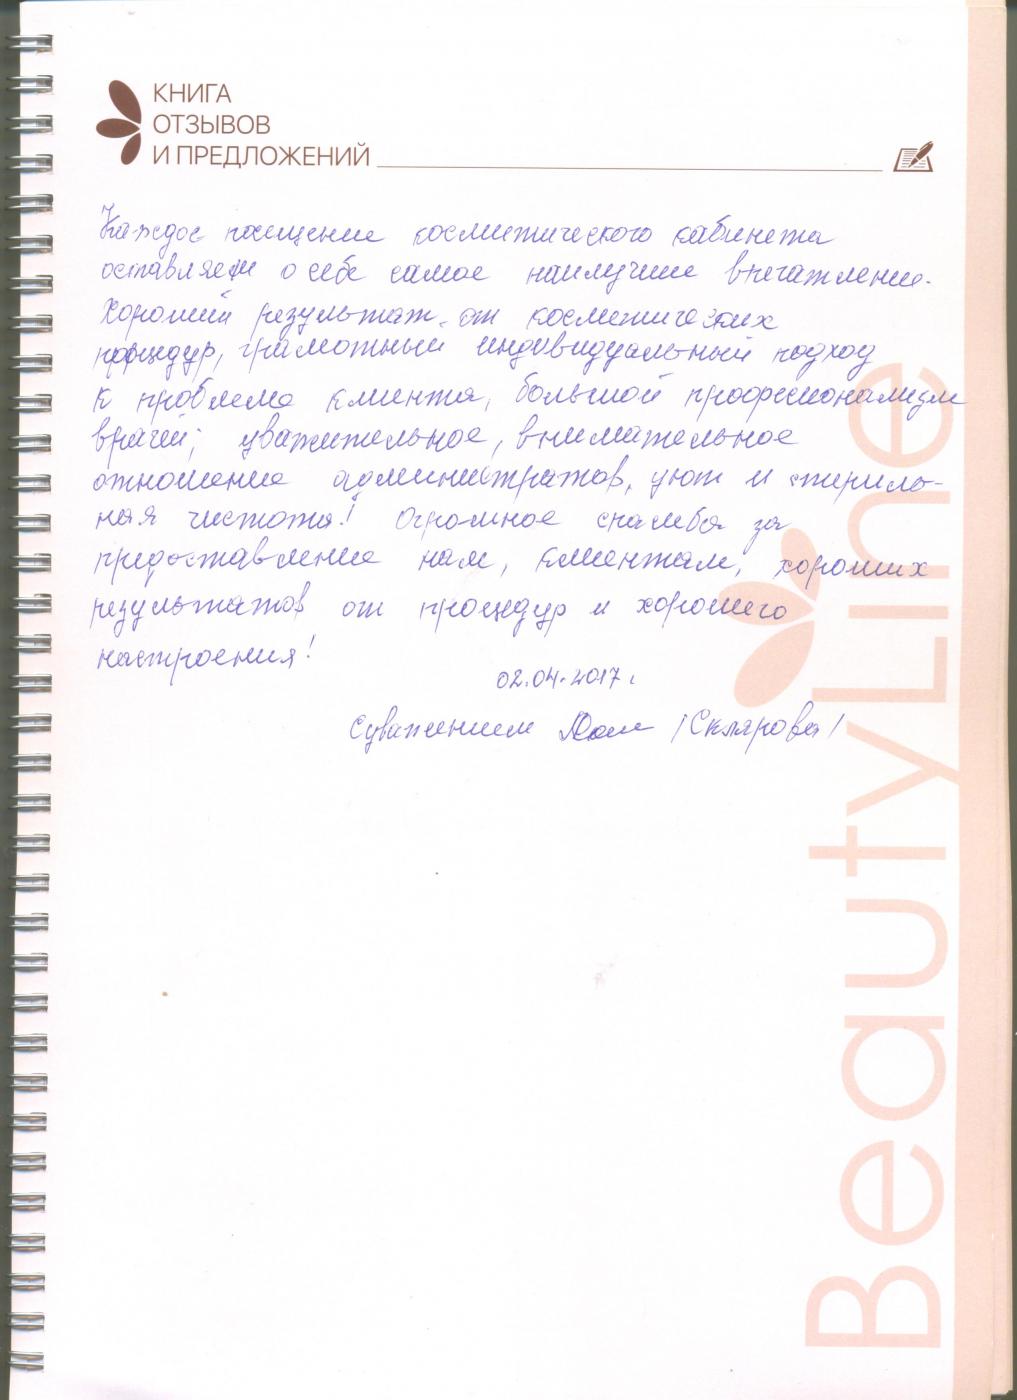 КНИГА
ОТЗЫВОВ
И ПРЕДЛОЖЕНИЙ
Каждое посещение косметического кабинета
оставляет о себе самое наилучшие впечатление.
Хороший результат от косметических
процедур, грамотный индивидуальный подход
к проблеме клиента, большой профессионализм
врачей; уважительное, внимательное
отношение администратов, уют и стериль-
ная чистота! Огромное спасибо за
предоставление нам, клиентам, хороших
результатов от процедур и хорошего
настроения!
02.04.2017г.
С уважением /Склярова/
BeautyLine